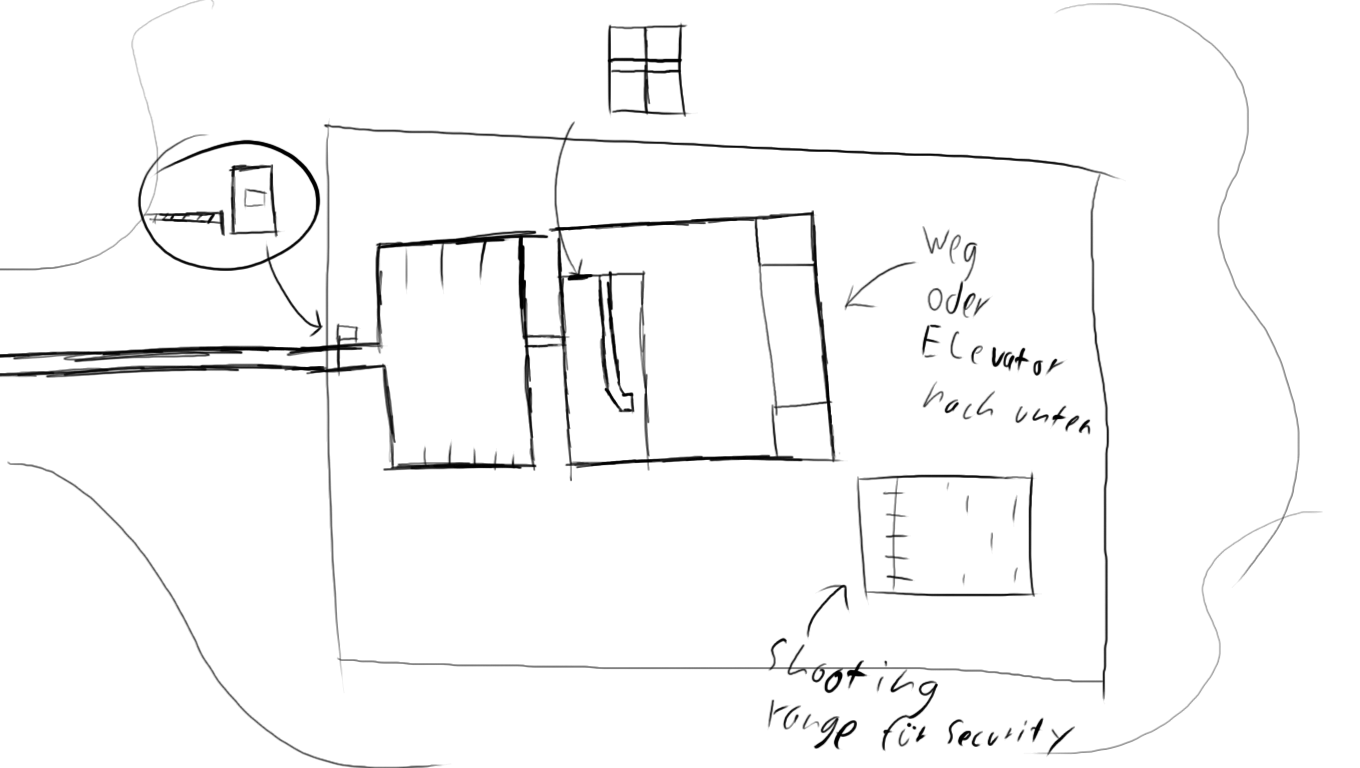 Weg
oder
Elevator
nach unten
Shooting
range für Security